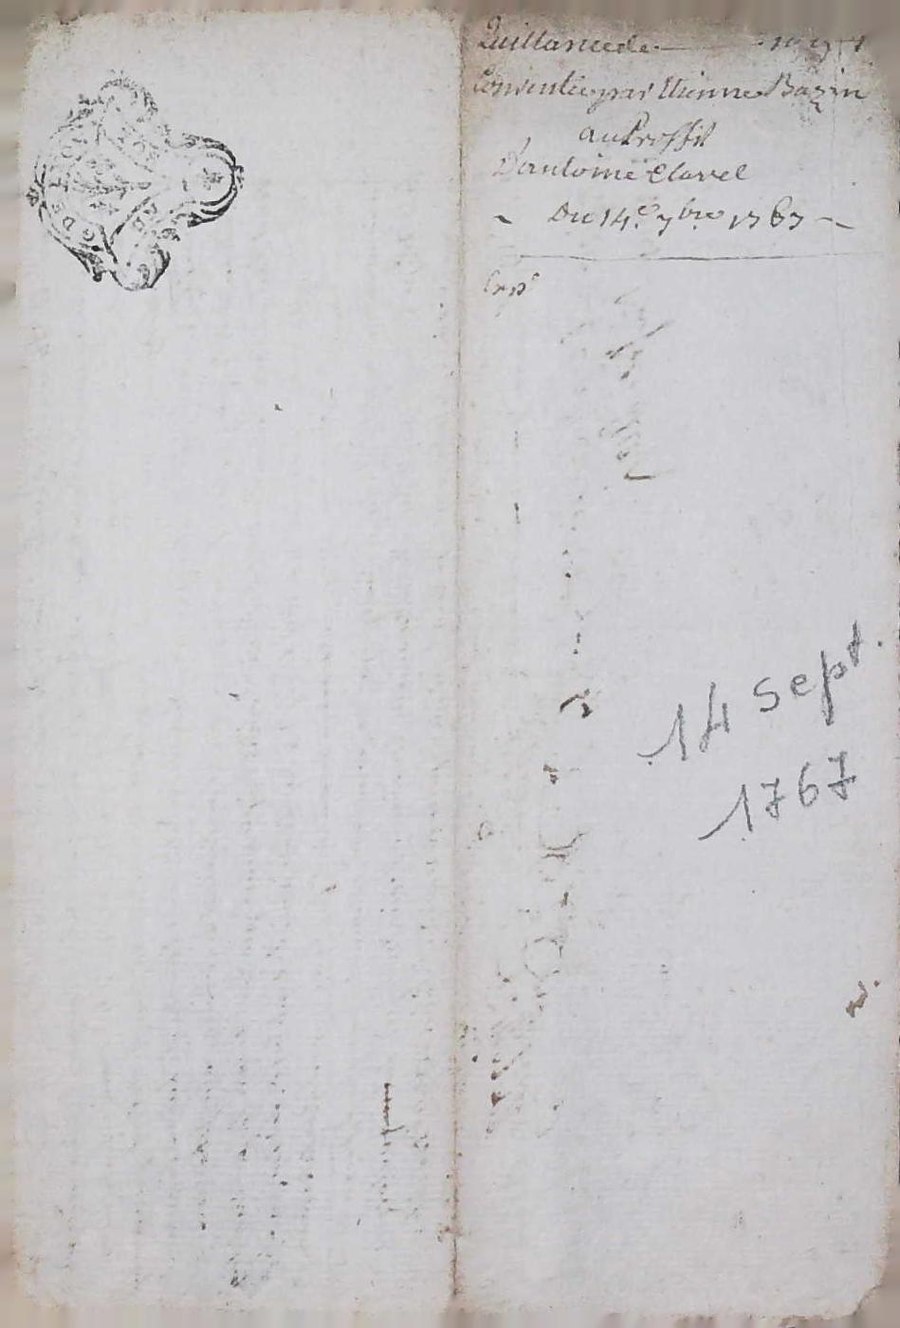 Quittance de
Consentie par Etienne Bazin
au Proffit
D'antoine Clavel
Du 14e 7bre 1767
Expe
14 Sept.
1767